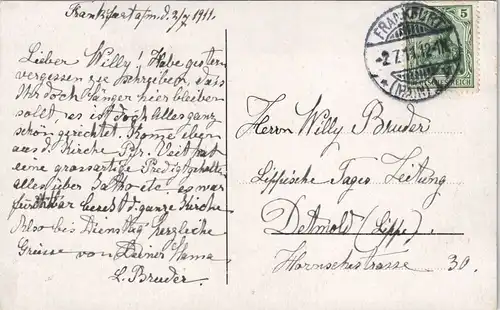 Frankfurt a/m. d. 2/7 1911.
Lieber Willy! Habe gestern
vergessen zu schreiben, dass
Ihr doch länger hier bleiben
sollt, es ist doch alles ganz
schön gerechtet. Kome eben
aus d. Kirche Pfr. Veit hat
eine grossartige Predigt gehalten
alles über etc. es war
furchtbar heiss d. ganze Kirche
Also bis Dienstag herzliche
Grüsse von Deiner Mama
L. Bruder.
FRANKFURT
-2.7.11. 12-1N.
* (MAIN)
5
Herrn Willy Bruder
Lippische Tages Zeitung
Detmold (Lippe).
Hornschestrasse 30.